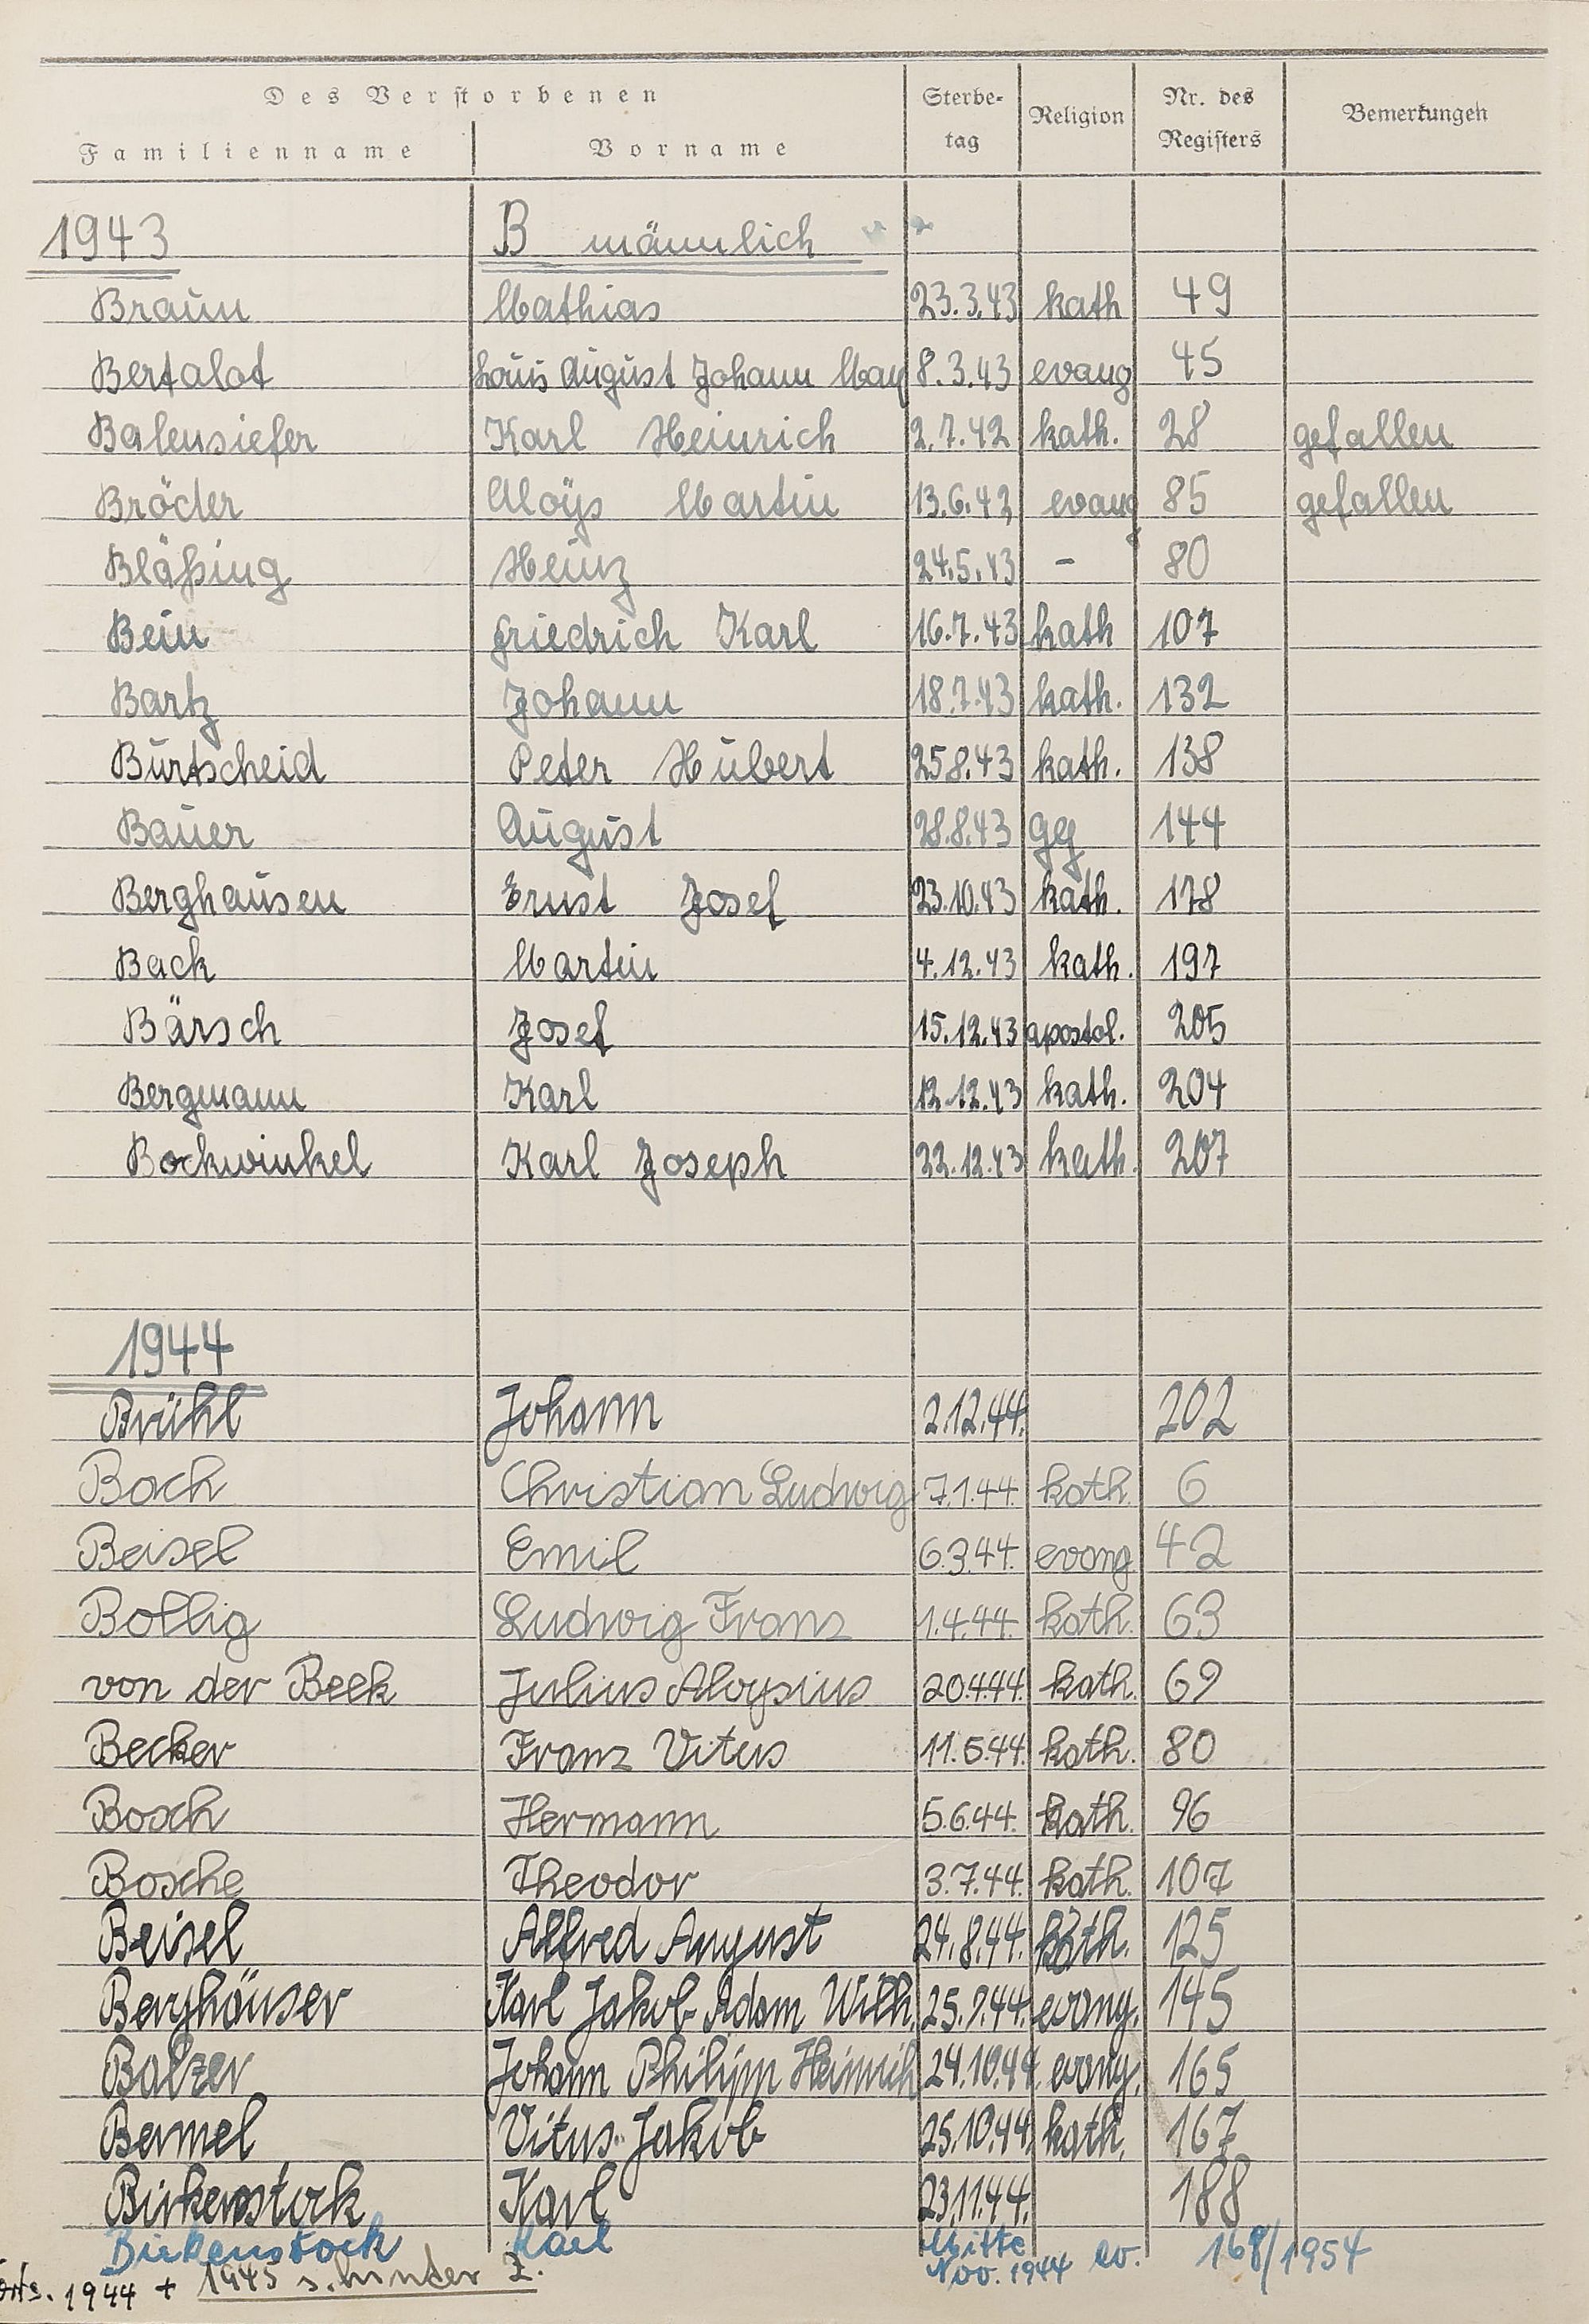 Des Verstorbenen
Familienname Vorname Sterbe-tag Religion Nr. des Registers Bemerkungen
1943 B männlich
Braun Mathias 23.3.43 kath 49
Bertalot Louis August Johann May 8.3.43 evang 45
Balensiefer Karl Heinrich 2.7.42 kath. 28 gefallen
Bröder Aloÿs Martin 13.6.42 evang 85 gefallen
Bläßing Heinz 24.5.43 - 80
Bein Friedrich Karl 16.7.43 kath 107
Bartz Johann 18.7.43 kath. 132
Burtscheid Peter Hubert 25 8.43 kath. 138
Bauer August 28.8.43 gg 144
Berghausen Ernst Josef 23.10.43 kath. 178
Back Martin 4.12.43 kath. 197
Bärsch Josef 15.12.43 apostol. 205
Bergmann Karl 12.12.43 kath. 204
Bockwinkel Karl Joseph 22.12.43 kath. 207
1944
Brühl Johann 2.12.44. 202
Bach Christian Ludwig 7.1.44. kath. 6
Beisel Emil 6.3.44. evang 42
Bollig Ludwig Franz 1.4.44. kath. 63
von der Beek Julius Aloysius 20.4.44. kath. 69
Becker Franz Vitus 11.5.44. kath. 80
Bosch Hermann 5.6.44. kath. 96
Bosche Theodor 3.7.44. kath. 107
Beisel Alfred August 24.8.44. kath. 125
Berghäuser Karl Jakob Adam Wilh. 25.9.44. evang. 145
Balzer Johann Philipp Heinrich 24.10.44. evang. 165
Bermel Vitus Jakob 25.10.44. kath. 167
Birkenstock Karl 23.11.44. 188
Birkenstock Karl Mitte Nov. 1944 ev. 168/1954
1944 + 1945 s. hinter Z.